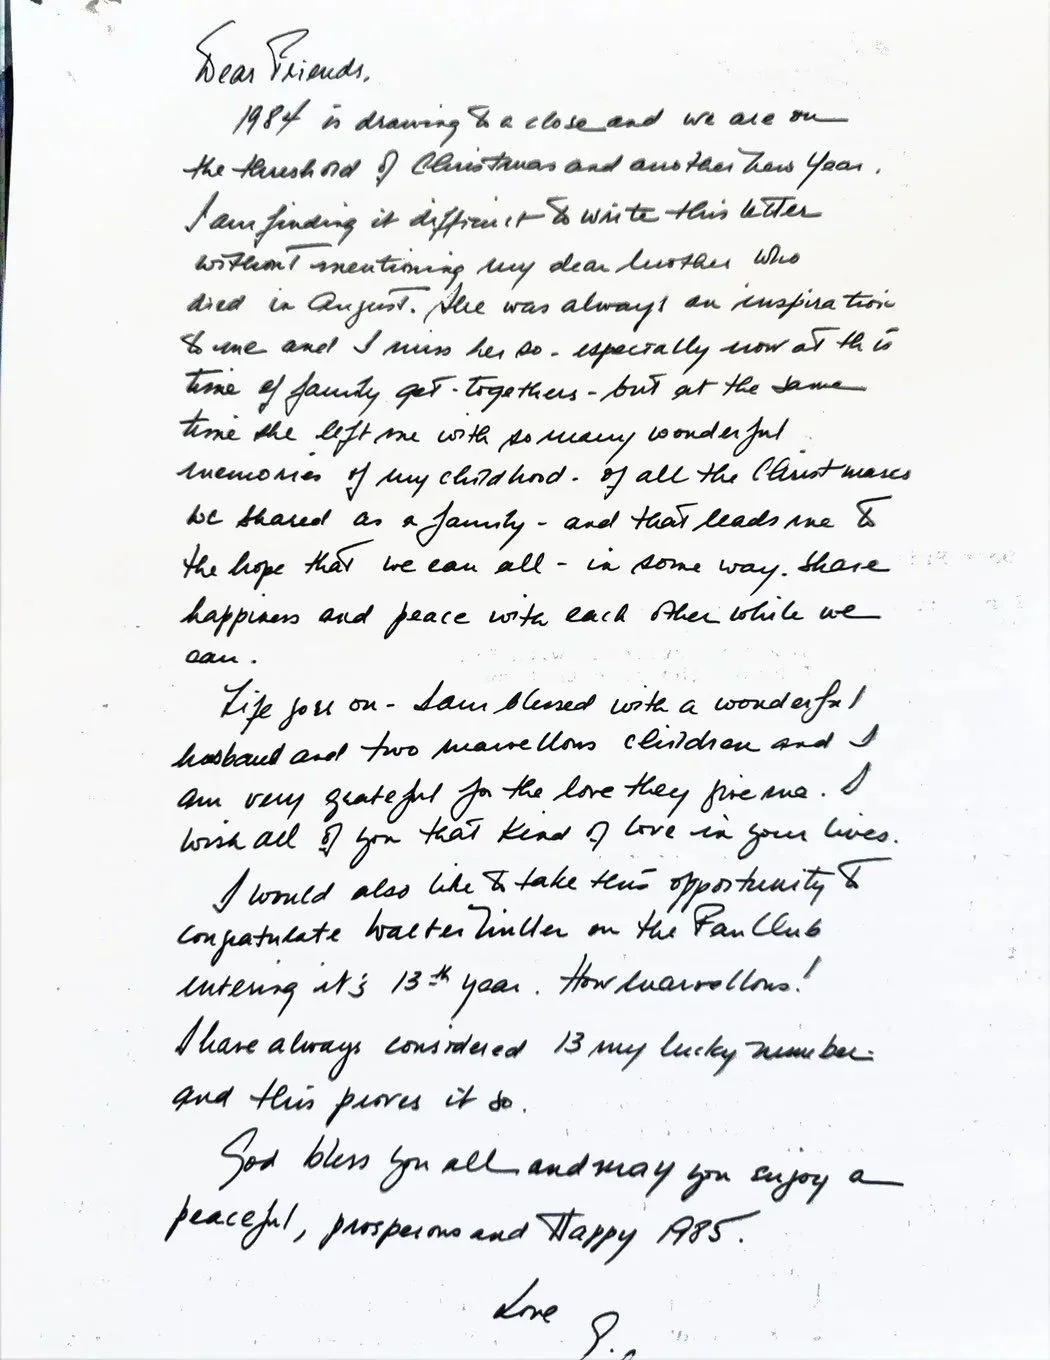 Dear Friends,
1984 is drawing to a close and we are on
the threshold of Christmas and another New Year.
I am finding it difficult to write this letter
without mentioning my dear mother who
died in August. She was always an inspiration
to me and I miss her so - especially now at this
time of family get-togethers - but at the same
time she left me with so many wonderful
memories of my childhood - of all the Christmases
we shared as a family - and that leads me to
the hope that we can all - in some way. Share
happiness and peace with each other while we
can.
Life goes on - I am blessed with a wonderful
husband and two marvellous children and I
am very grateful for the love they give me. I
wish all of you that kind of love in your lives.
I would also like to take this opportunity to
congratulate Walter on the Fan Club
entering it's 13th year. How marvellous!
I have always considered 13 my lucky number
and this proves it so.
God bless you all and may you enjoy a
peaceful, prosperous and Happy 1985.
Love